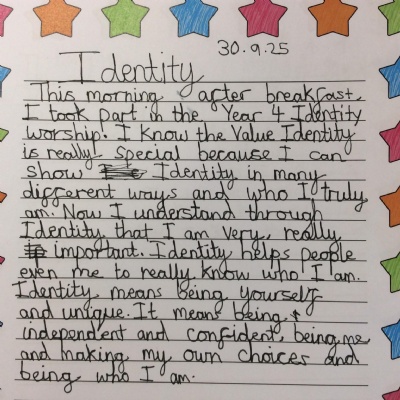 30.9.25
Identity
This morning after breakfast,
I took part in the Year 4 Identity
worship. I know the Value Identity
is really special because I can
show Identity in many
different ways and who I truly
am. Now I understand through
Identity that I am very, really
important. Identity helps people
even me to really know who I am.
Identity means being yourself
and unique. It means being
independent and confident, being me
and making my own choices and
being who I am.